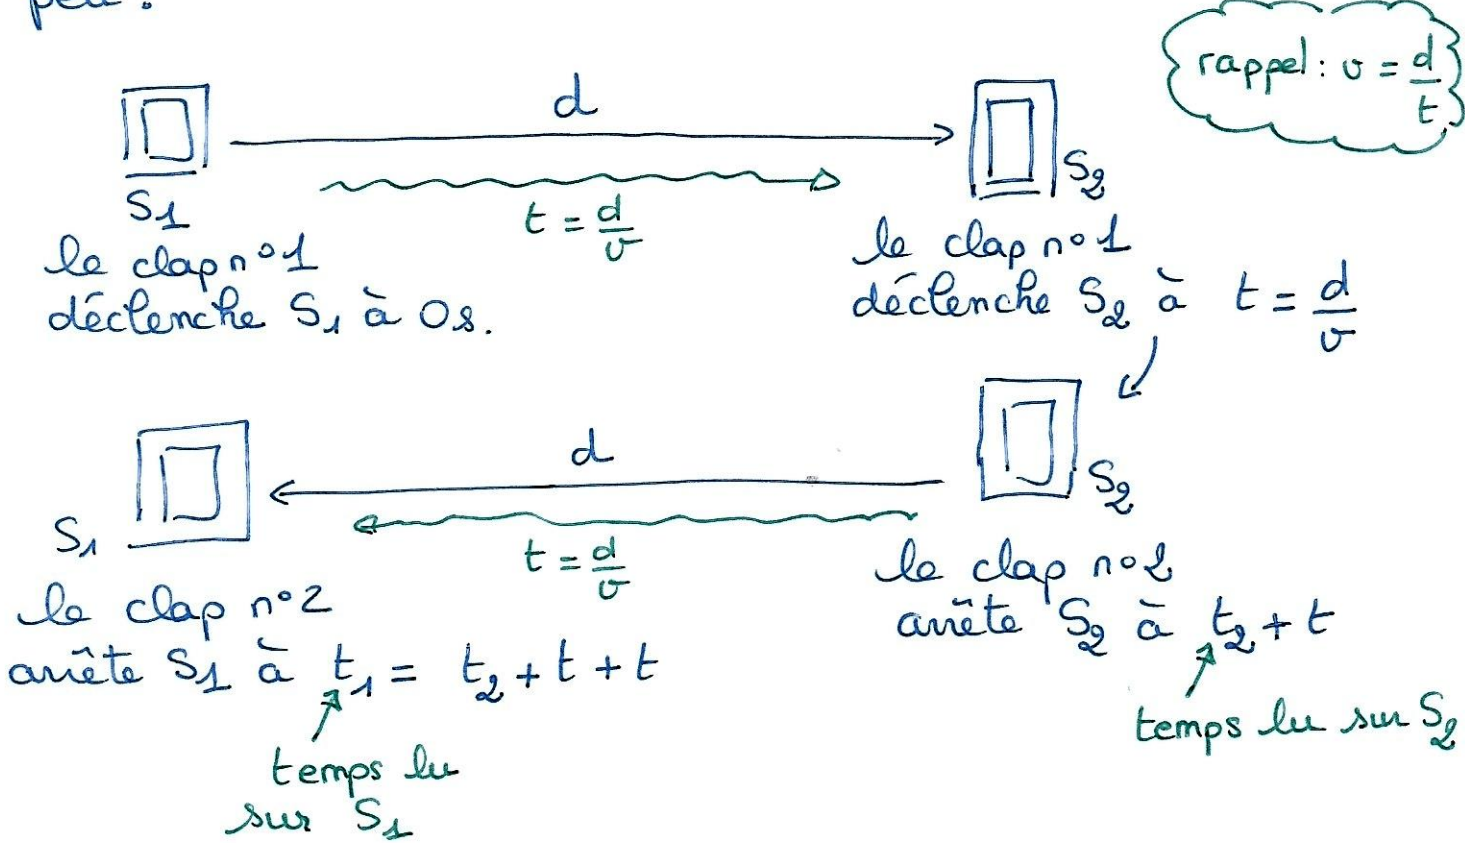 peu.
rappel : v = d/t
d
S1
S2
t = d/v
le clap n°1
déclenche S1 à 0s.
le clap n°1
déclenche S2 à t = d/v
d
S1
S2
t = d/v
le clap n°2
arrête S1 à t1 = t2 + t + t
temps lu
sur S1
le clap n°2
arrête S2 à t2 + t
temps lu sur S2